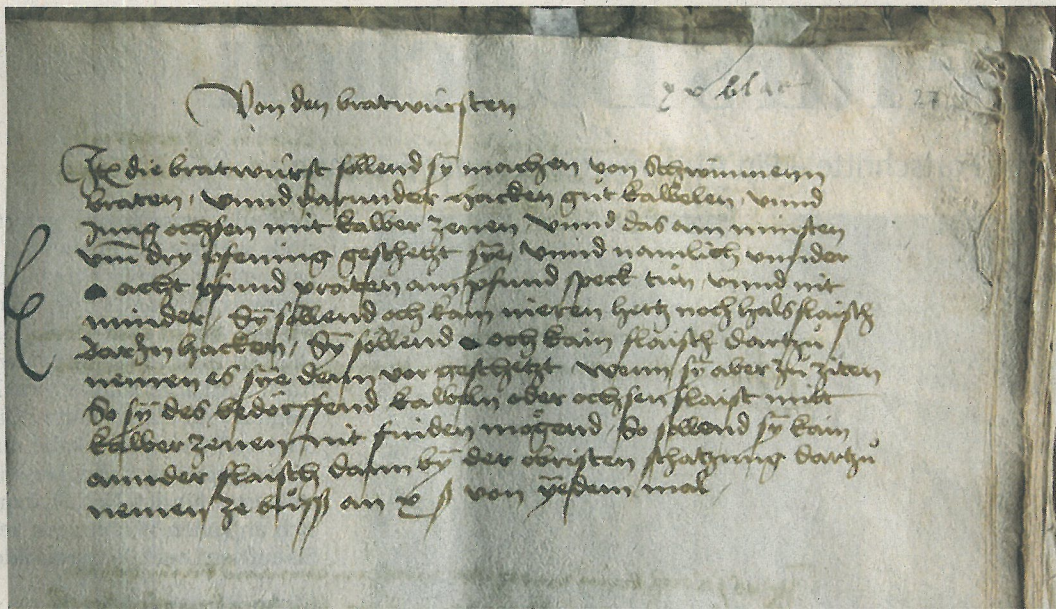 Von den bratwürsten
xv blat
27
Itx die bratwürst söllend sÿ machen von Schwininenn
braten, vnnd darunder hacken gůt kalbelen, vnnd
Jung ochsen mit kalber zenen vnnd das am minsten
vm̄ dry pfening geschetzt sye, vnnd namlich vnnder
acht pfund praten ain pfund speck tůn, vnnd nit
minder, Sÿ söllend och kain nieren hertz noch halsflaisch
darJn hacken, Sÿ söllend och kain flaisch dartzů
nemen es sye dann vor geschetzt wenn sÿ aber zů ziten
So sÿ des bedörffend kalbeln oder ochsen flaisch mitt
kalber zenen nit finden mögend, So söllend sÿ kain
annder flaisch dann bÿ der obristen schatzung dartzů
nemen ze bůsß an x ß von yedem mal